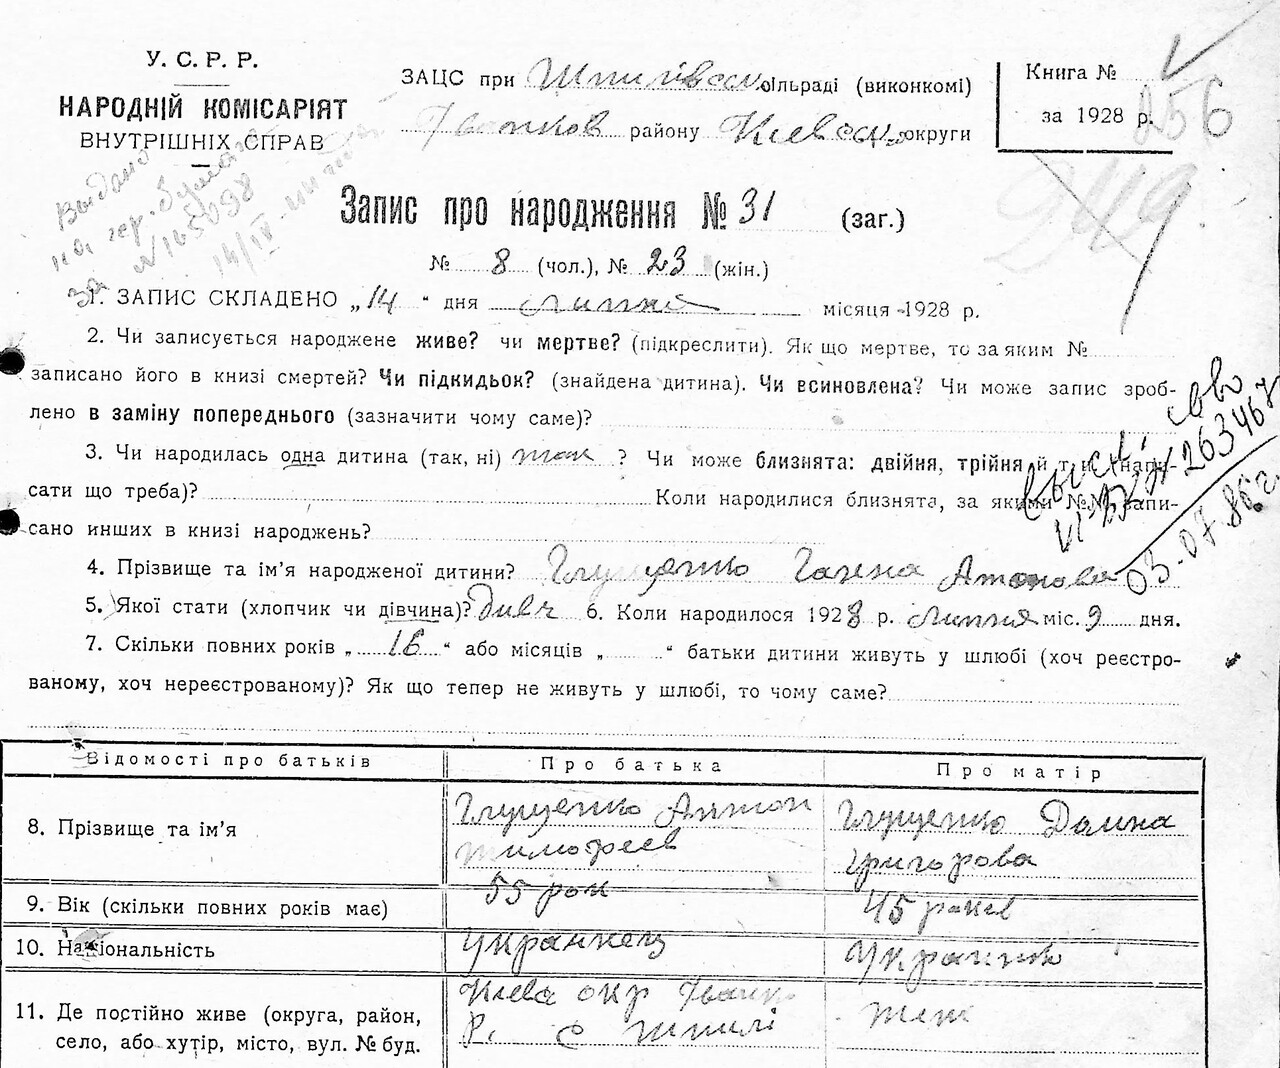 У. С. Р. Р.
НАРОДНІЙ КОМІСАРІЯТ
ВНУТРІШНІХ СПРАВ
ЗАЦС при Шпилівськ сільраді (виконкомі)
Іванков району Київськ округи
Книга №
за 1928 р.
256
249
Выдано
на гер. бумаге
за N 165098
14/IV
Запис про народження № 31 (заг.)
№ 8 (чол.), № 23 (жін.)
1. ЗАПИС СКЛАДЕНО „14“ дня липня місяця 1928 р.
2. Чи записується народжене живе? чи мертве? (підкреслити). Як що мертве, то за яким №
записано його в книзі смертей? Чи підкидьок? (знайдена дитина). Чи всиновлена? Чи може запис зроб-
лено в заміну попереднього (зазначити чому саме)?
3. Чи народилась одна дитина (так, ні) так ? Чи може близнята: двійня, трійня й т. і. (напи-
сати що треба)? Коли народилися близнята, за якими №№ запи-
сано инших в книзі народжень?
св-во
№ 263467
03.07.86г.
4. Прізвище та ім’я народженої дитини? Глущенко Ганна Антонова
5. Якої стати (хлопчик чи дівчина)? Дивч 6. Коли народилося 1928 р. липня міс. 9 дня.
7. Скільки повних років „16“ або місяців „ “ батьки дитини живуть у шлюбі (хоч реєстро-
ваному, хоч нереєстрованому)? Як що тепер не живуть у шлюбі, то чому саме?
Відомості про батьків Про батька Про матір
8. Прізвище та ім’я Глущенко Антон Тимофеев Глущенко Домна Григорова
9. Вік (скільки повних років має) 55 рок 45 роков
10. Національність Украинец Украинка
11. Де постійно живе (округа, район,
село, або хутір, місто, вул. № буд.
Киева окр Іванк
р. с Шпилі